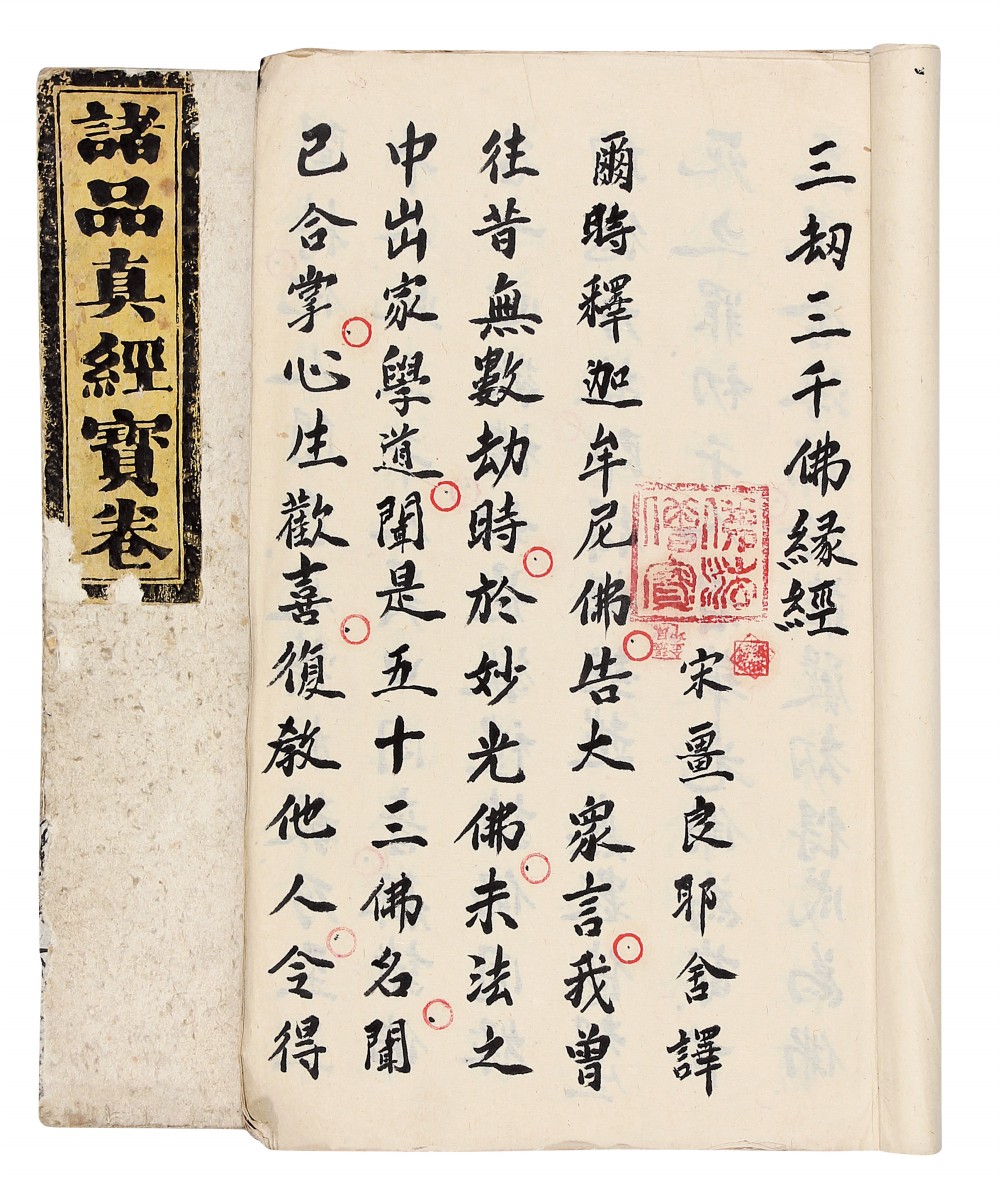 三劫三千佛緣經
宋畺良耶舍譯
爾時釋迦牟尼佛告大衆言我曾
往昔無數劫時於妙光佛末法之
中出家學道聞是五十三佛名聞
已合掌心生歡喜復教他人令得
諸品真經寶卷
佛法僧寶